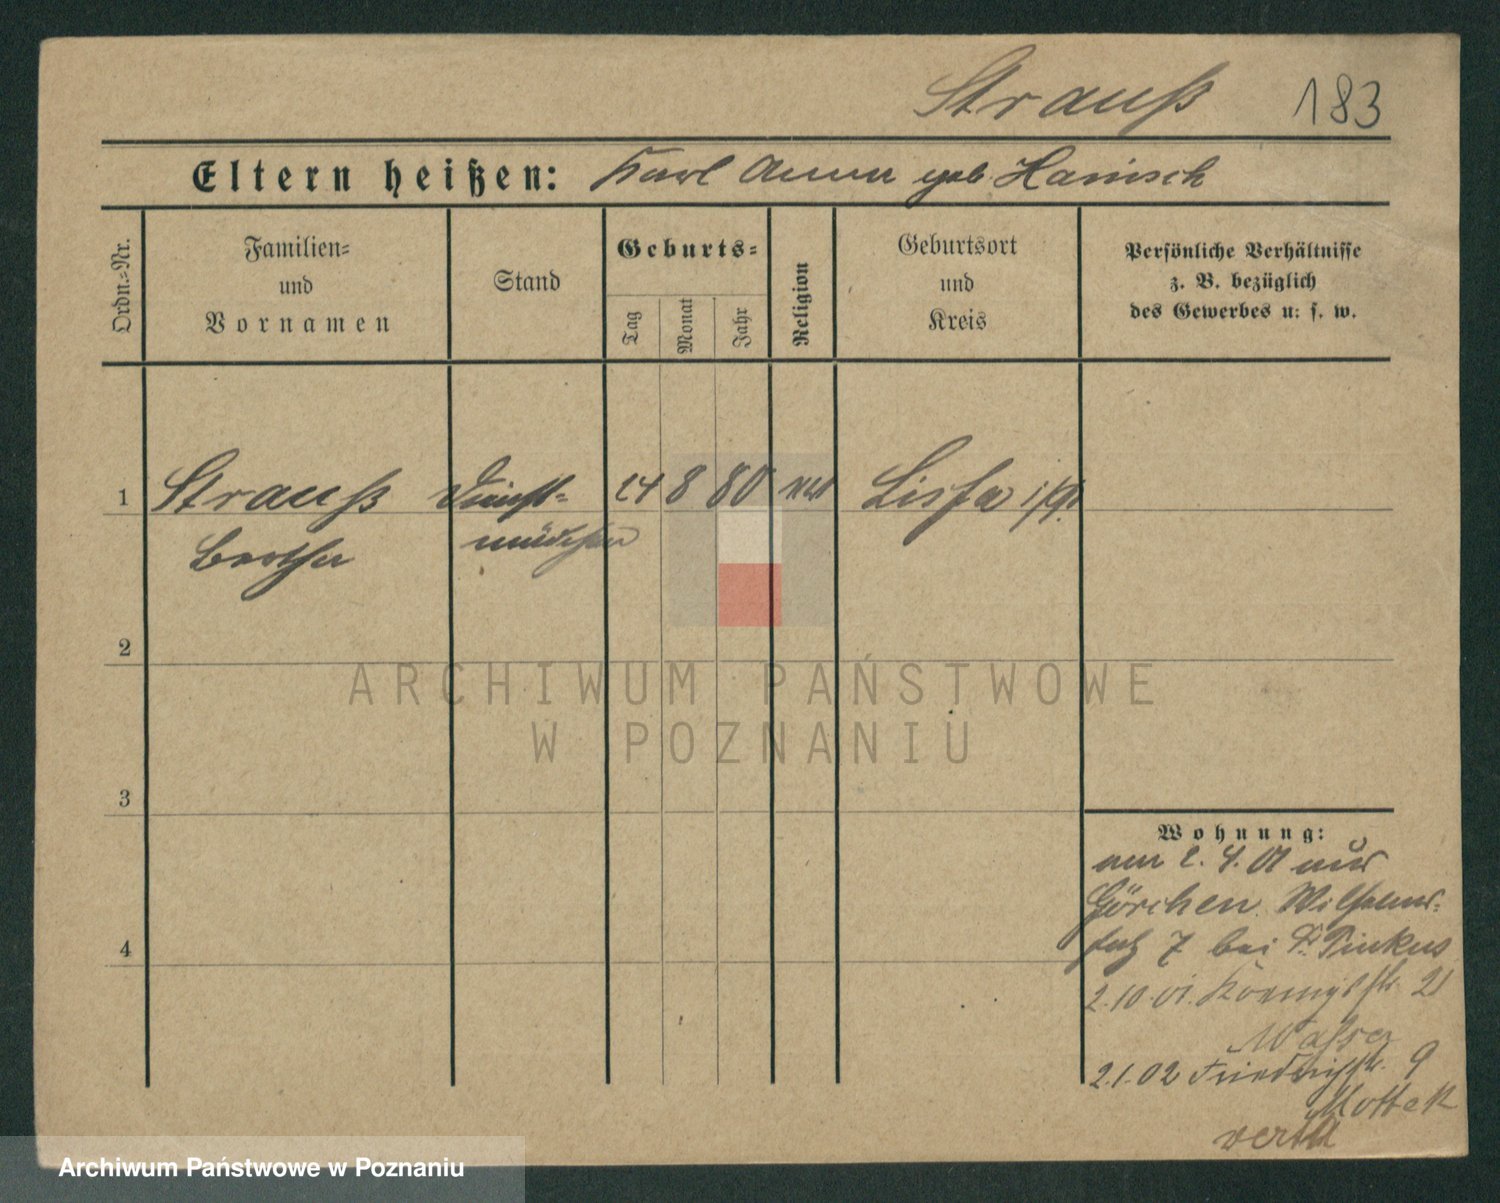 Strauß 183
Eltern heißen: Karl Anna geb. Hanisch
Ordn.-Nr.
Familien-
und
Vornamen
Stand
Geburts-
Tag
Monat
Jahr
Religion
Geburtsort
und
Kreis
Persönliche Verhältnisse
z. B. bezüglich
des Gewerbes u. s. w.
1 Strauß Dienst- 24 8 80 Lissa i/P.
Bertha mädchen
2
3
4
Wohnung:
am 2. 4. 01 aus
Görchen. Wilhelms-
platz 7 bei Dr. Pinkus
2.10.01. Koenigsstr. 21
2.1.02 Friedrichstr. 9
Mottek
ARCHIWUM PAŃSTWOWE
W POZNANIU
Archiwum Państwowe w Poznaniu